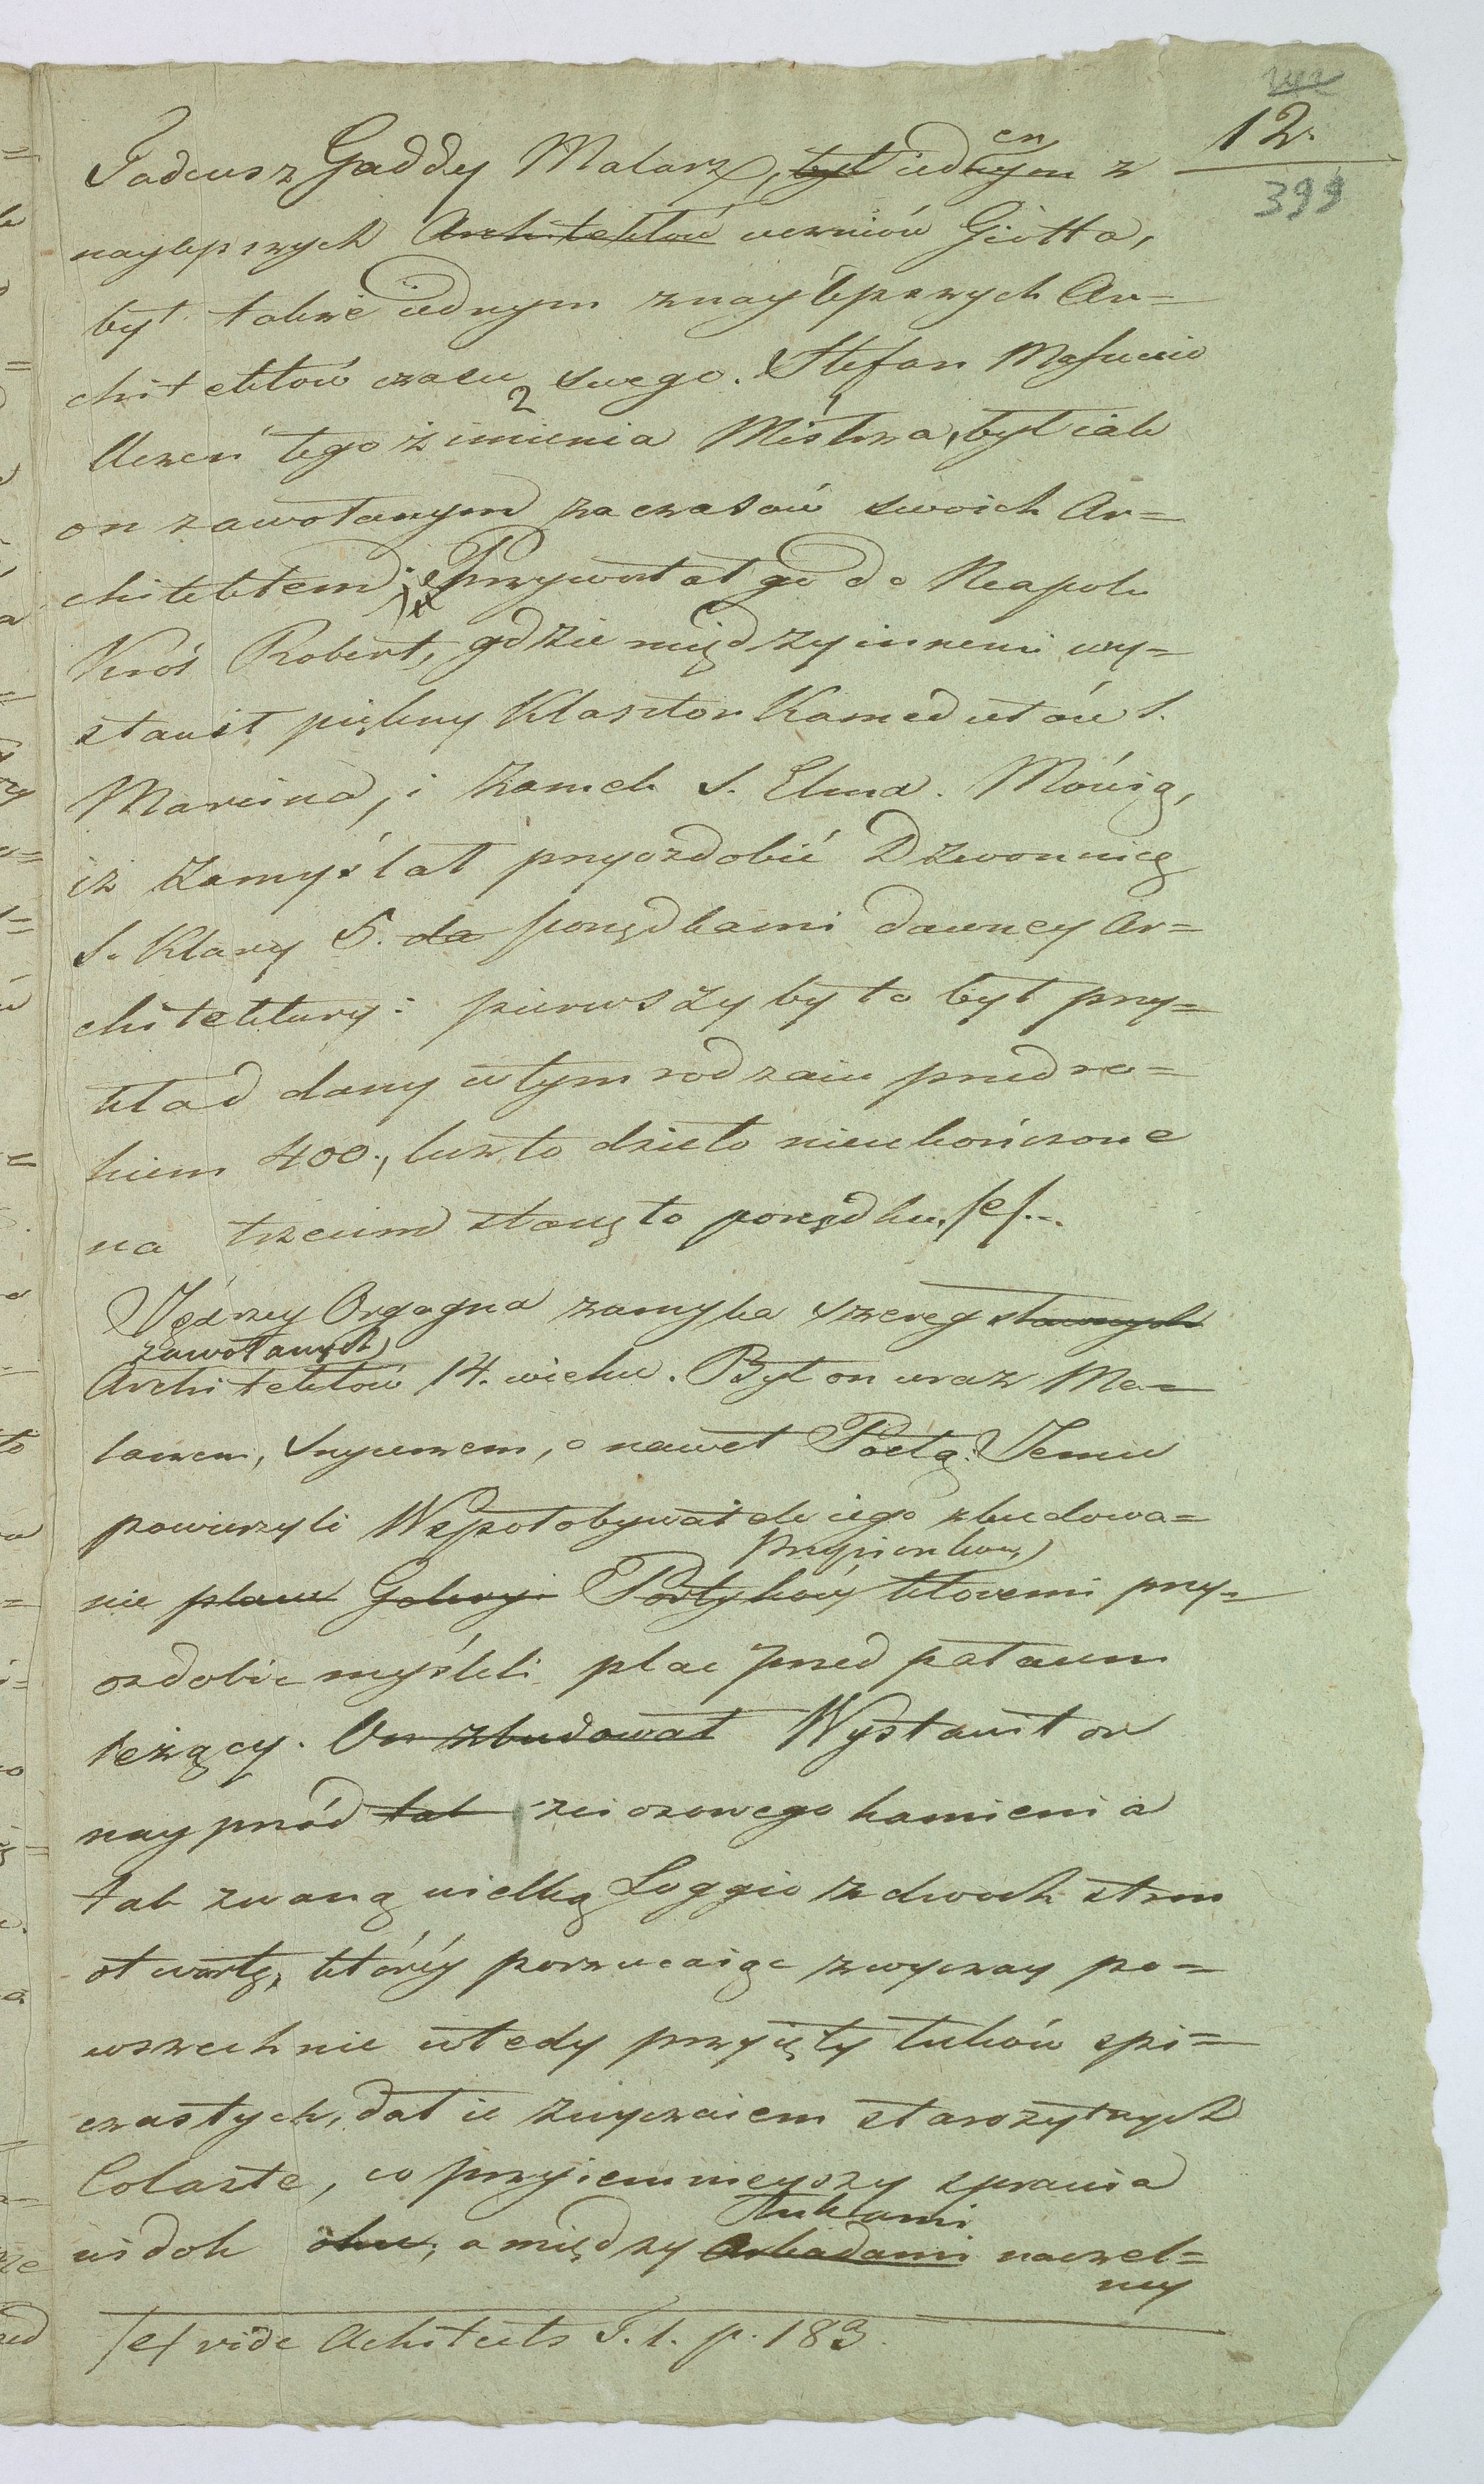 12.
399
Tadeusz Gaddy Malarz, był iednym en z
naylepszych Architektów uczniów Giotta,
był także iednym z naylepszych Ar=
chitektów czasu swego. Stefan Masuccio
Uczeń tegoż imienia 2 Mistrza 1, był iak
on zawołanym za czasów swoich Ar=
chitektem; Przywołał go do Neapolu
Król Robert, gdzie między innemi wy=
stawił piękny Klasztor Kamedułów S.
Marcina, i Zamek S. Elma. Mówią,
iż zamyślał przyozdobić Dzwonnicę
S. Klary 5. da porządkami dawney Ar=
chitektury: pierwszy by to był przy=
kład dany w tym rodzaiu przed ro=
kiem 400., lecz to dzieło nieukończone
na trzecim stanęło porządku. /e/...
Jędrzey Orgagna zamyka szereg sławnych
zawołanych
Architektów 14. wieku. Był on wraz Ma=
larzem, Snycerzem, a nawet Poetą. Jemu
powierzyli Współobywatele iego zbudowa=
Przysionków
nie placu Galeryi Portyków któremi przy=
ozdobić myśleli plac przed pałacem
leżący. On zbudował Wystawił on
nayprzód tak z ciosowego kamienia
tak zwaną wielką Loggio z dwoch stron
otwartą, któréy porzucaiąc zwyczay po=
wszechnie wtedy przyięty łuków spi=
czastych, dał ie zwyczaiem starożytnych
Colaste, co przyiemnieyszy sprawia
łukami
widok oku, a między Arkadami naczel=
ney
/e/ vide Achitects T. 1. p. 183.